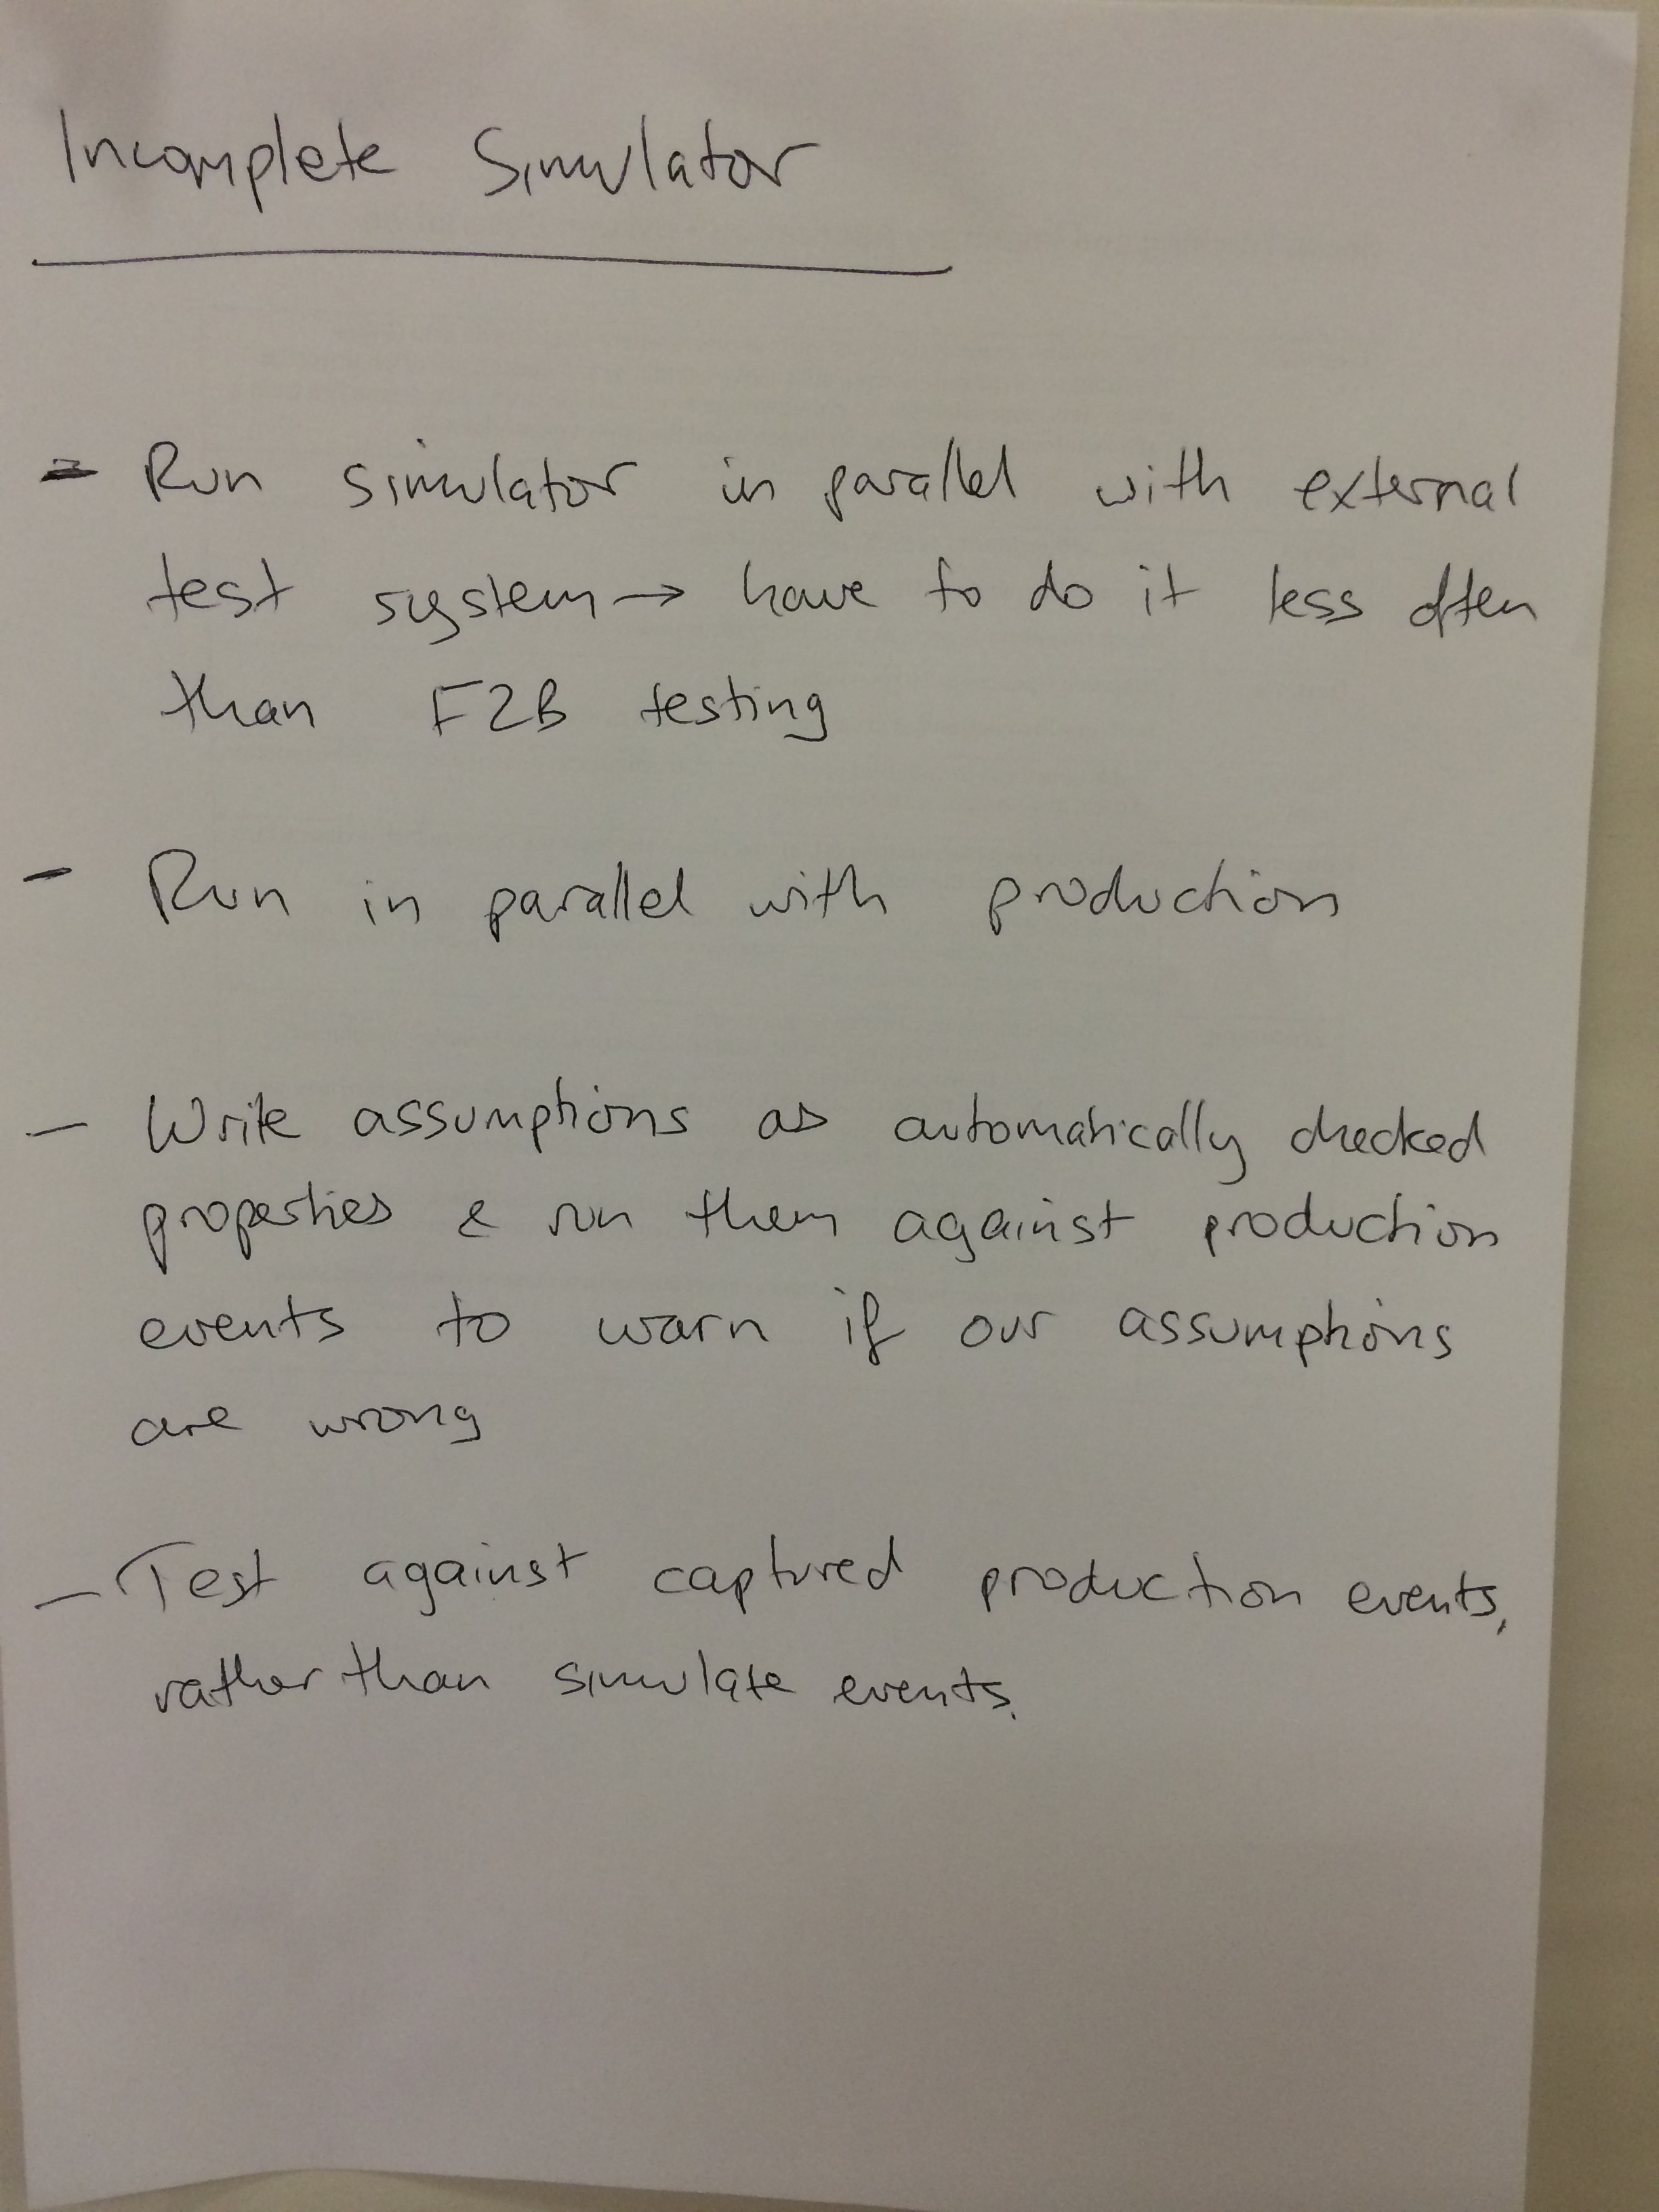 Incomplete Simulator
- Run simulator in parallel with external
test system → have to do it less often
than F2B testing
- Run in parallel with production
- Write assumptions as automatically checked
properties & run them against production
events to warn if our assumptions
are wrong
- Test against captured production events,
rather than simulate events.